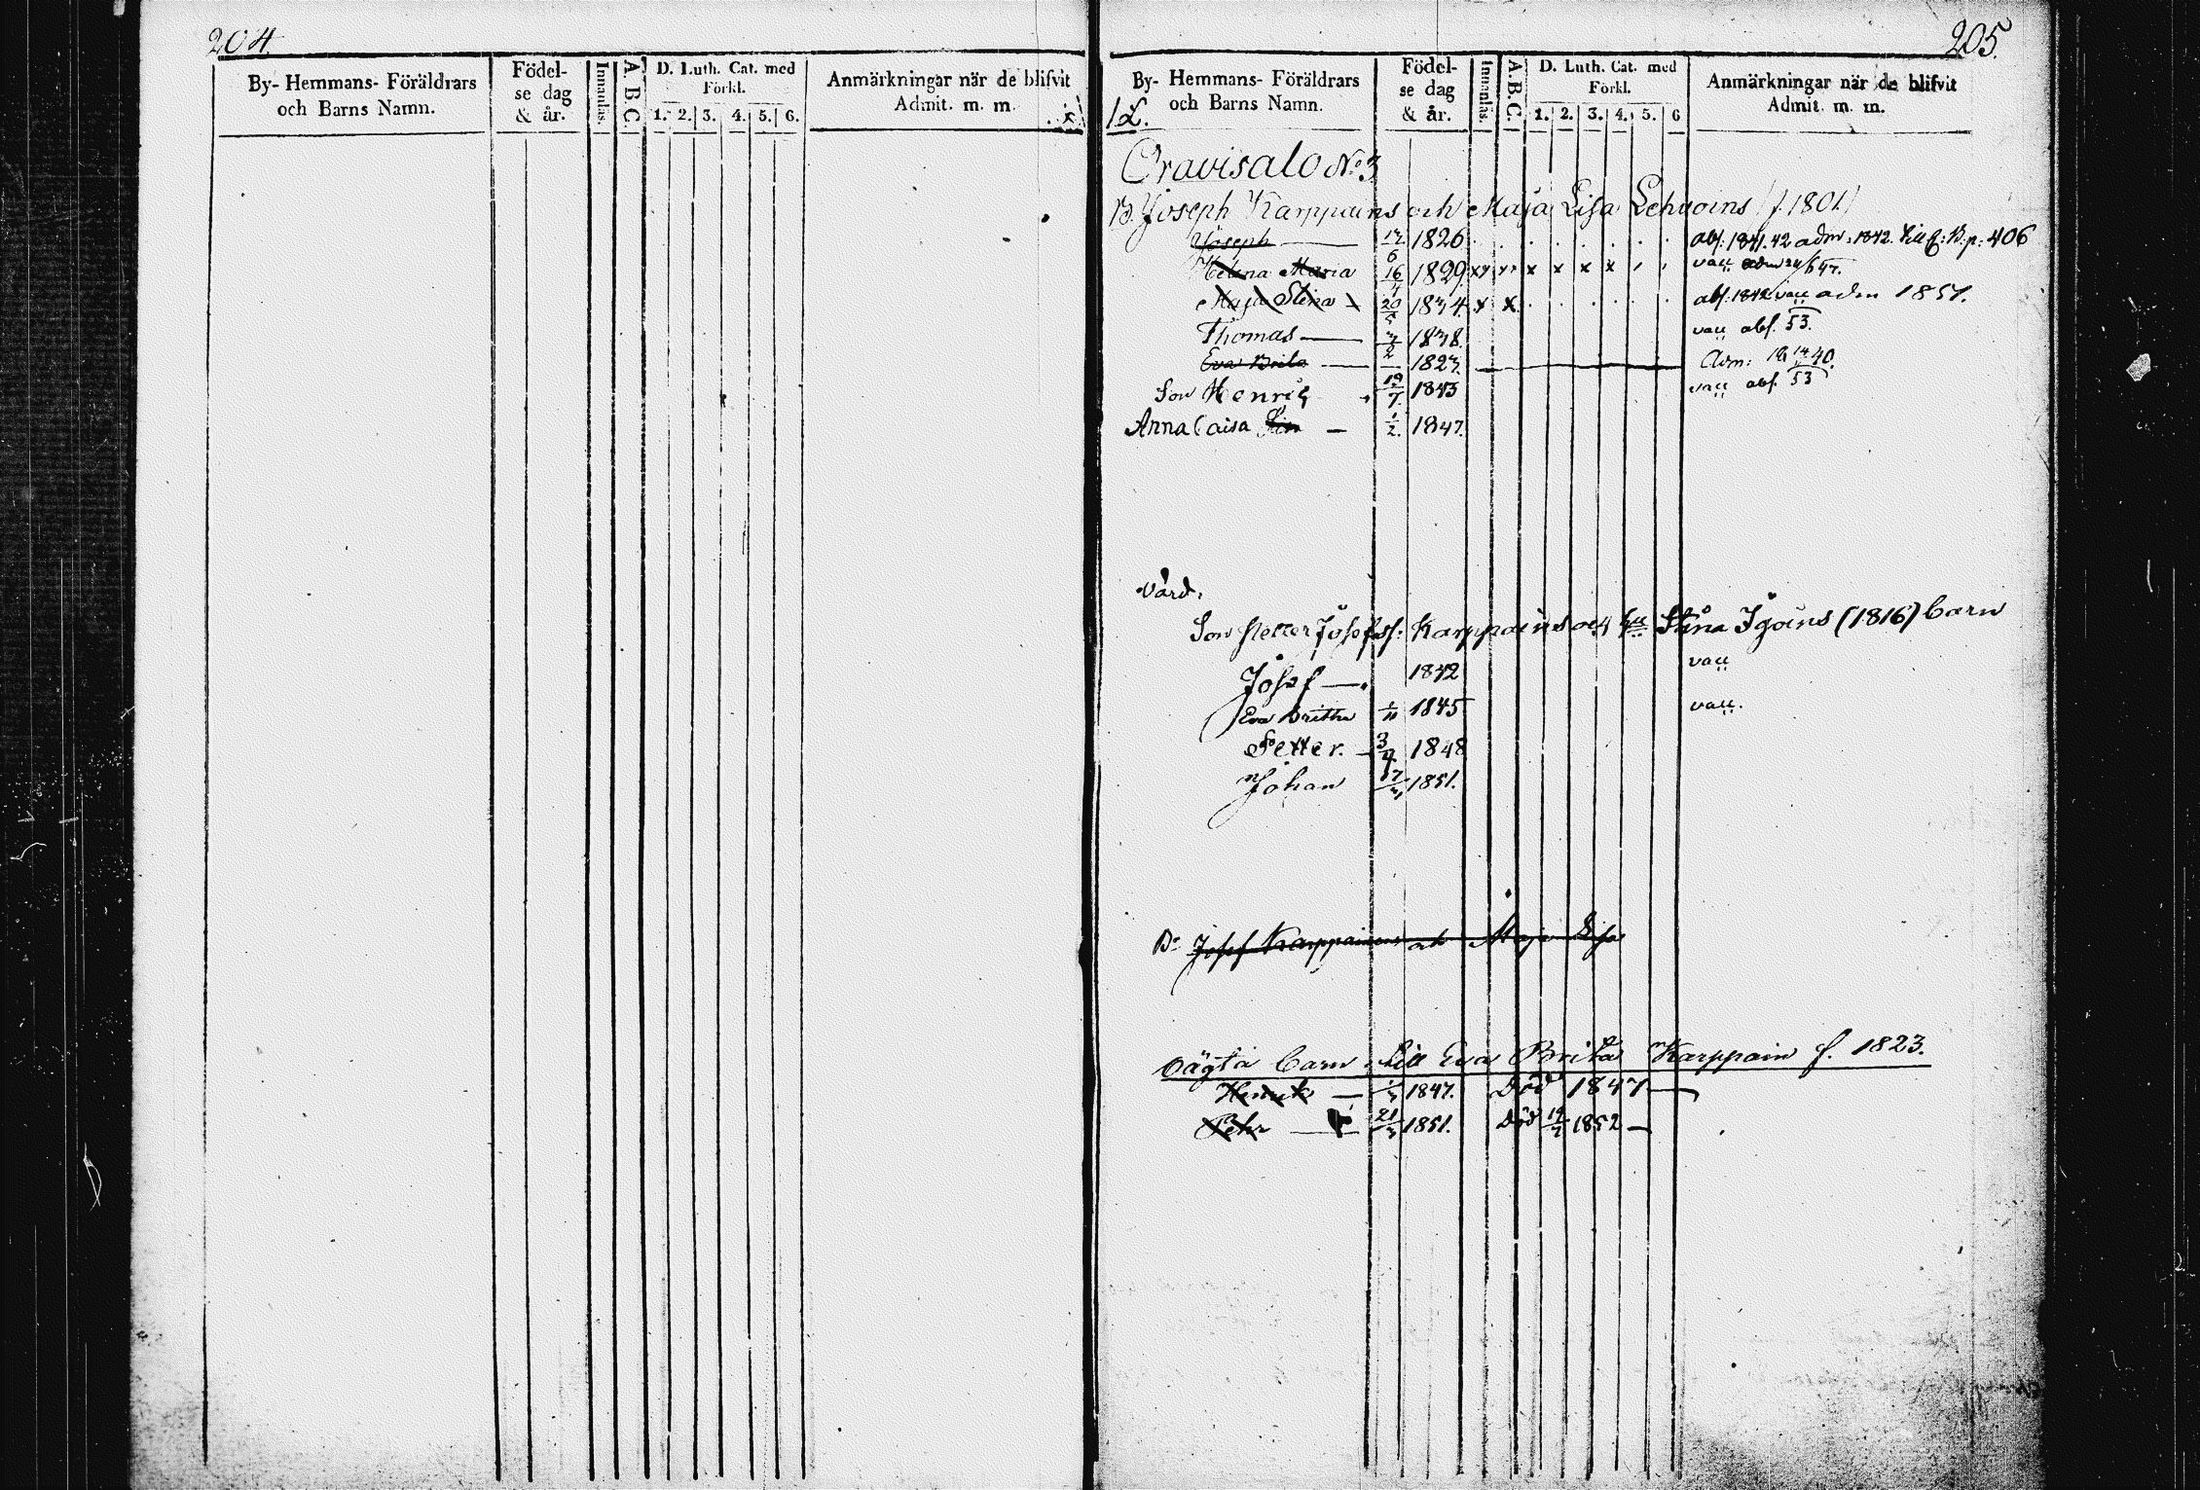 204
By- Hemmans- Föräldrars och Barns Namn.
Födel-se dag & år.
Innanläs.
A. B. C.
D. Luth. Cat. med Förkl.
1. 2. 3. 4. 5. 6.
Anmärkningar när de blifvit Admit. m. m.
205.
By- Hemmans- Föräldrars och Barns Namn.
Födel-se dag & år.
Innanläs.
A. B. C.
D. Luth. Cat. med Förkl.
1. 2. 3. 4. 5. 6
Anmärkningar när de blifvit Admit. m. m.
Oravisalo No 3
B. Joseph Karppains och Maja Lisa Lehvoins (f. 1801)
Joseph 1826 abs. 1841. 42 adm. 1842. p. 406
Helena Maria 16/4 1829 x x x x vacc. adm 24/6 47.
Maja Stina 20/5 1834. x x abs. 1842 vacc adm 1851.
Thomas 1838. vacc abs. 53.
Eva Brita 1823. Adm: 40.
Son Henric 19/7 1843 vacc abs. 53
Anna Caisa 1/2. 1847.
Värd.
Son Petter Josefss: Karppains och hu Stina Igoins (1816) barn
Josef 1842 vacc
Eva Britha 1/11 1845 vacc.
Petter. 3/4 1848
Johan 17/3 1851.
Bn Josef Karppainens och Maja Lisa
Oägta barn till Eva Brita Karppain f. 1823.
Henrik 1847. Död 1847
Pehr 21/3 1851. Död 1852